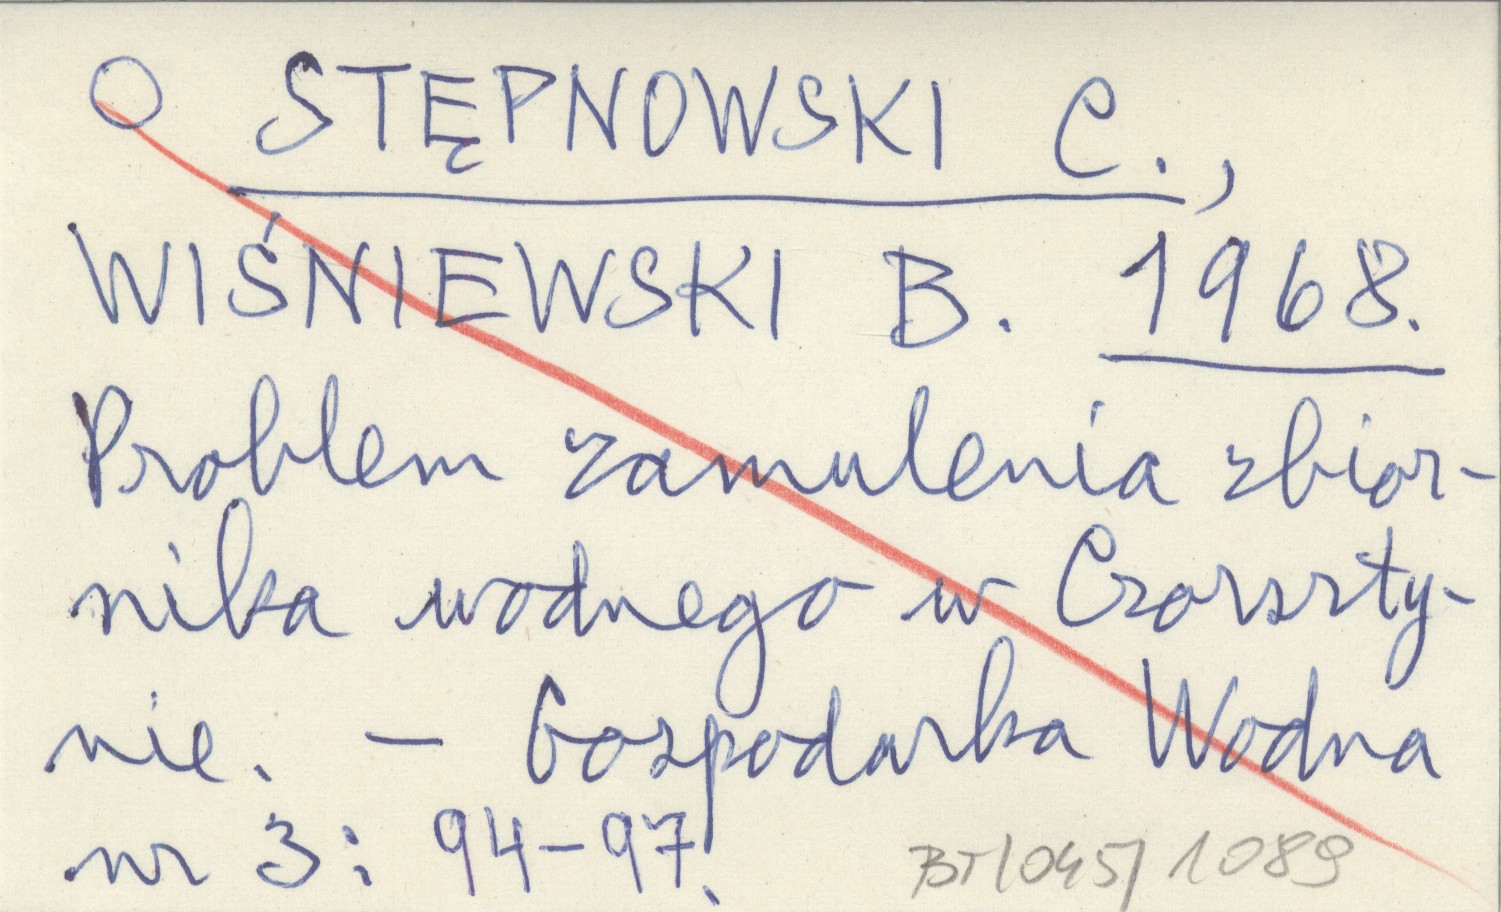 STĘPNOWSKI C.,
WIŚNIEWSKI B. 1968.
Problem zamulenia zbior-
nika wodnego w Czorszty-
nie. – Gospodarka Wodna
nr 3: 94–97.
BT/045/1089